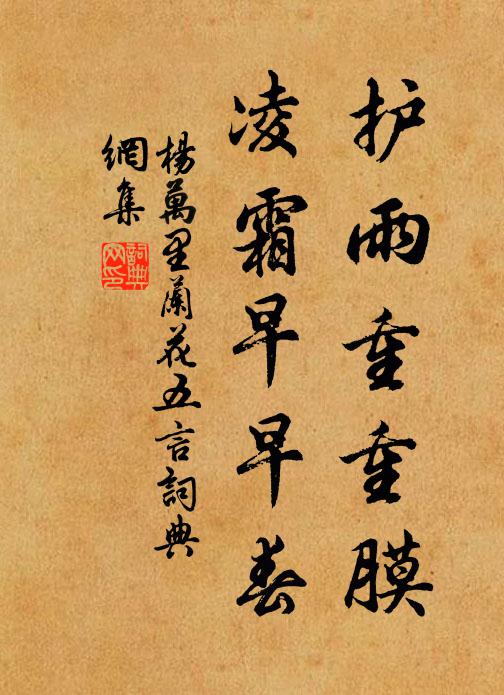 护雨重重膜
凌霜早早春
楊萬里蘭花五言詞典
網集
詞典
网印